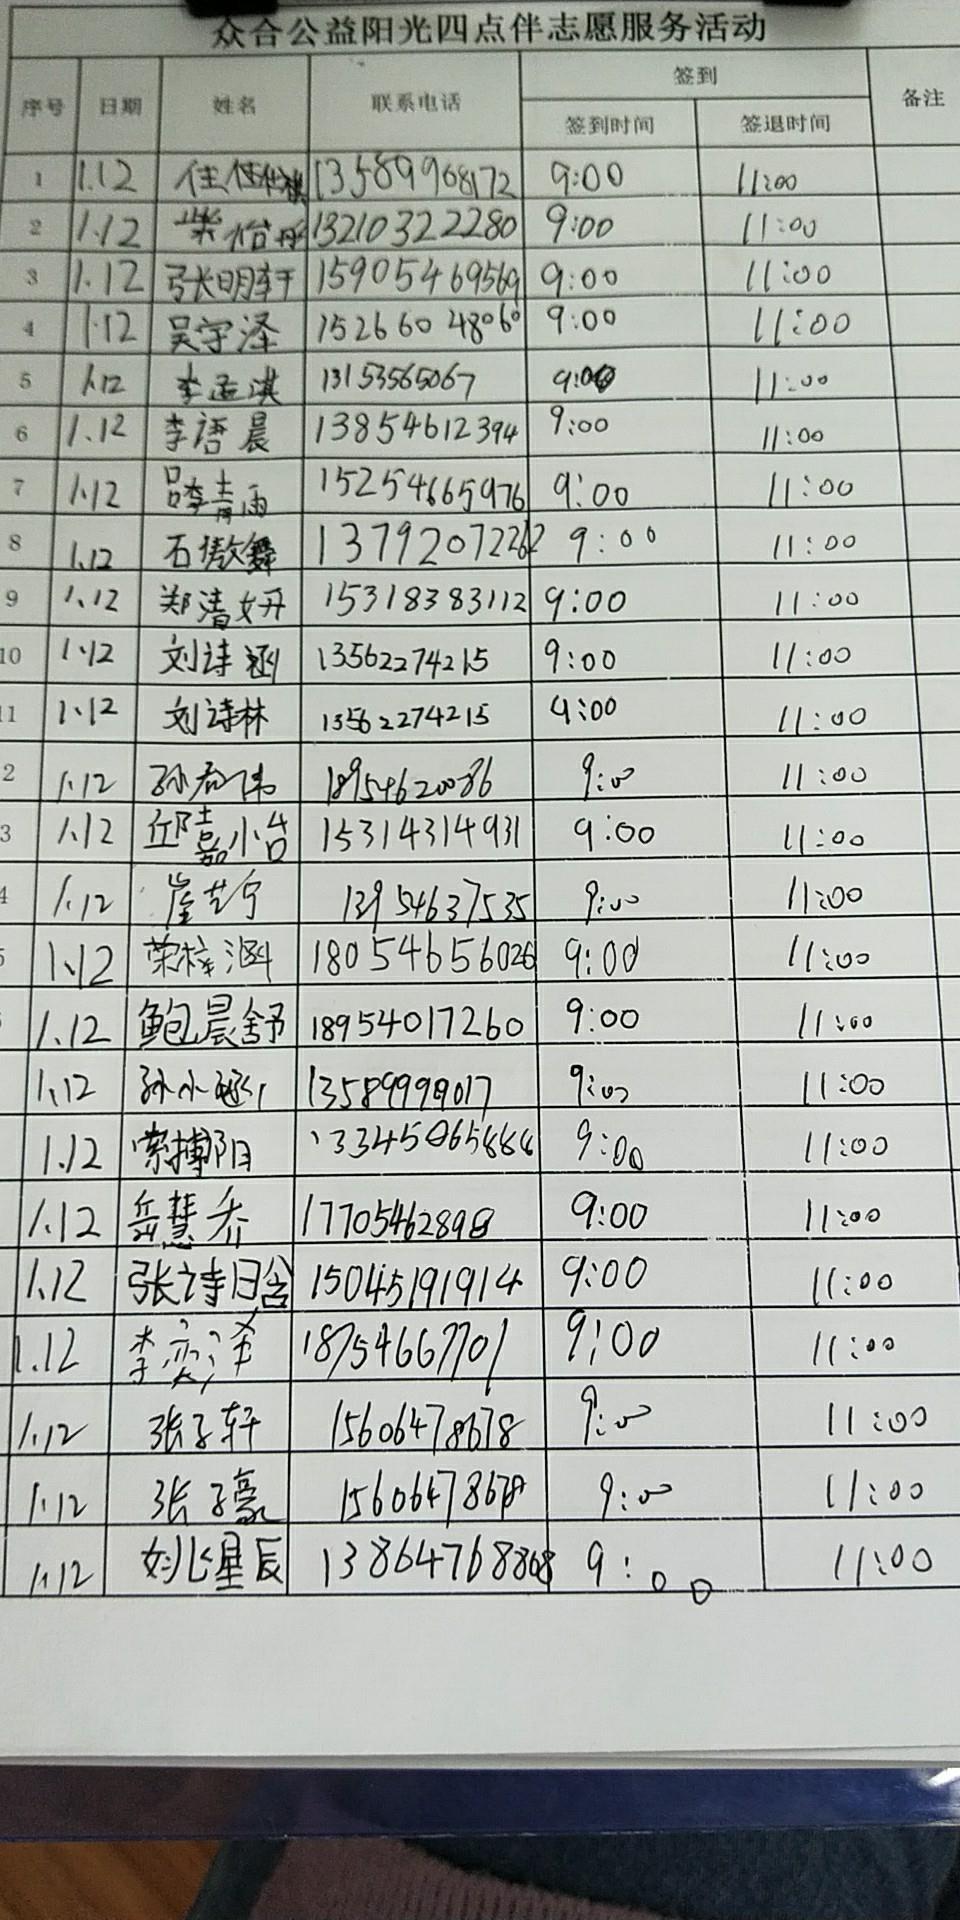 众合公益阳光四点伴志愿服务活动
序号 日期 姓名 联系电话 签到 备注
签到时间 签退时间
1 1.12 13589968172 9:00 11:00
2 1.12 柴怡丹 13210322280 9:00 11:00
3 1.12 张明轩 15905469569 9:00 11:00
4 1.12 吴宇泽 15266048060 9:00 11:00
5 1.12 李孟淇 13153565067 9:00 11:00
6 1.12 李语晨 13854612394 9:00 11:00
7 1.12 吕李青雨 15254665976 9:00 11:00
8 1.12 石傲舞 13792072262 9:00 11:00
9 1.12 郑清妍 15318383112 9:00 11:00
10 1.12 刘诗涵 13562274215 9:00 11:00
11 1.12 刘诗林 13562274215 9:00 11:00
2 1.12 孙君伟 18954620086 9:00 11:00
3 1.12 邱嘉小台 15314314931 9:00 11:00
4 1.12 崔艺宁 13954637535 9:00 11:00
5 1.12 荣梓涵 18054656026 9:00 11:00
1.12 鲍晨舒 18954017260 9:00 11:00
1.12 孙小涵 13589999017 9:00 11:00
1.12 索搏阳 9:00 11:00
1.12 岳慧乔 17705462898 9:00 11:00
1.12 张诗晗 15045191914 9:00 11:00
1.12 李奕泽 18754667701 9:00 11:00
1.12 张子轩 15606478678 9:00 11:00
1.12 张子豪 15606478678 9:00 11:00
1.12 姚星辰 13864768868 9:00 11:00